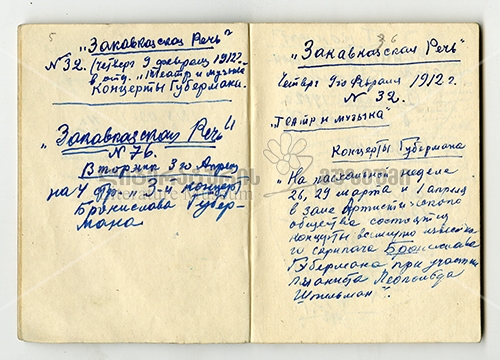 5
„Закавказская Речь"
N 32. (Четверг 9 февраля 1912 г.
в отд. „Театр и музыка"
Концерты Губермана.
„Закавказская Речь"
N 76.
Вторник 3го Апреля
на 4 стр. 3й концерт
Бронислава Губер-
мана
6
„Закавказская Речь"
Четверг 9го Февраля 1912 г.
N 32.
„Театр и музыка"
Концерты Губермана
„На пасхальной неделе
26, 29 марта и 1 апреля
в зале Артистического
общества состоятся
концерты всемирно известно-
го скрипача Бронислава
Губермана при участии
пианиста Леопольда
Шпильман".